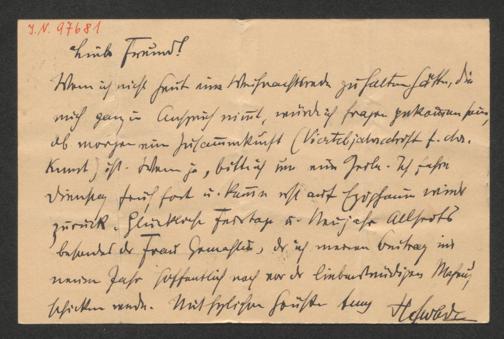 J.N. 97681
Lieber Freund!
Wenn ich nicht heut eine Weihnachtsrede zu halten hätte, die
mich ganz in Anspruch nimmt, würde ich fragen gekommen sein,
ob morgen eine Zusammenkunft (Vierteljahrschrift f. d.
Kunst) ist. Wenn ja, bitte ich um eine Zeile. Ich fahre
Dienstag früh fort u. kann erst auf wieder
zurück. Glückliche Feiertage u. Neujahr Allseits
besonders der Frau Gemahlin, der ich meinen Beitrag im
neuen Jahr hoffentlich noch vor der liebenswürdigen
schicken werde. Mit herzlichen Grüßen